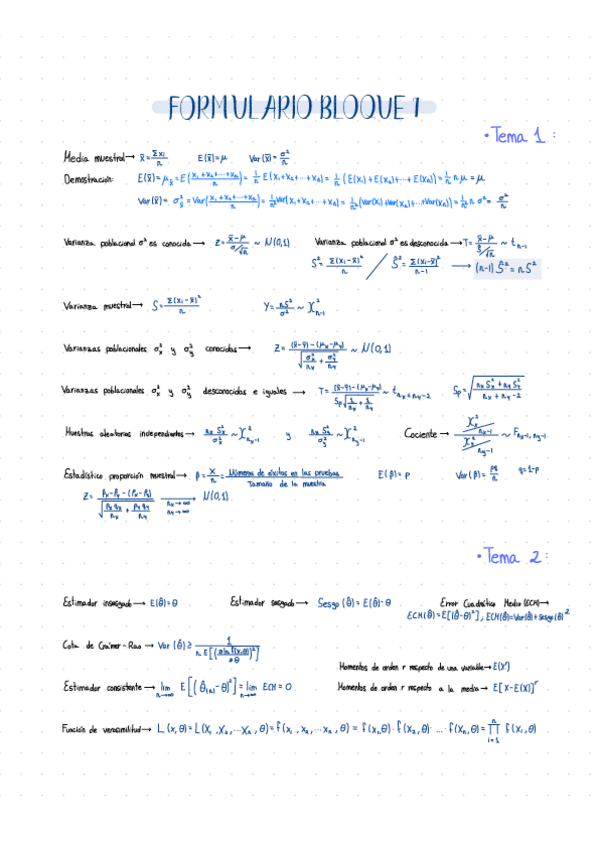 FORMULARIO BLOQUE 1
• Tema 1 :
Media muestral → x̄ = Σxi/n    E(x̄) = μ    Var(x̄) = σ²/n
Demostración: E(x̄) = μx̄ = E((x₁+x₂+···+xₙ)/n) = 1/n E(x₁+x₂+···+xₙ) = 1/n (E(x₁)+E(x₂)+···+E(xₙ)) = 1/n n μ = μ
Var(x̄) = σ²x̄ = Var((x₁+x₂+···+xₙ)/n) = 1/n² Var(x₁+x₂+···+xₙ) = 1/n² (Var(x₁)+Var(x₂)+···+Var(xₙ)) = 1/n² n σ² = σ²/n
Varianza poblacional σ² es conocida → Z = (x̄-μ)/(σ/√n) ~ N(0,1)    Varianza poblacional σ² es desconocida → T = (x̄-μ)/(Ŝ/√n) ~ tₙ₋₁
S² = Σ(xi-x̄)²/n / Ŝ² = Σ(xi-x̄)²/(n-1) → (n-1) Ŝ² = n S²
Varianza muestral → S = Σ(xi-x̄)²/n    Y = nS²/σ² ~ χ²ₙ₋₁
Varianzas poblacionales σ²x y σ²y conocidas → Z = ((x̄-ȳ)-(μx-μy))/√(σ²x/nx + σ²y/ny) ~ N(0,1)
Varianzas poblacionales σ²x y σ²y desconocidas e iguales → T = ((x̄-ȳ)-(μx-μy))/(Sp√(1/nx + 1/ny)) ~ t nx+ny-2    Sp = √((nx S²x + ny S²y)/(nx+ny-2))
Muestras aleatorias independientes → nx S²x/σ²x ~ χ²nx-1 y ny S²y/σ²y ~ χ²ny-1    Cociente → (χ²/nx-1)/(χ²/ny-1) ~ F nx-1, ny-1
Estadístico proporción muestral → p̂ = X/n = Número de éxitos en las pruebas/Tamaño de la muestra    E(p̂) = p    Var(p̂) = pq/n    q=1-p
Z = (p̂x-p̂y-(px-py))/√(px qx/nx + py qy/ny) → nx→∞ ny→∞ N(0,1)
• Tema 2 :
Estimador insesgado → E(θ̂) = θ    Estimador sesgado → Sesgo(θ̂) = E(θ̂)-θ    Error Cuadrático Medio (ECM) →
ECM(θ̂) = E[(θ̂-θ)²], ECM(θ̂) = Var(θ̂) + Sesgo(θ̂)²
Cota de Cramer-Rao → Var(θ̂) ≥ 1/(n E[(∂ln f(x,θ)/∂θ)²])
Momentos de orden r respecto de una variable → E(Xʳ)
Estimador consistente → lim n→∞ E[(θ̂(n)-θ)²] = lim n→∞ ECM = 0    Momentos de orden r respecto a la media → E[X-E(X)]ʳ
Función de verosimilitud → L(x,θ) = L(x₁,x₂,···xₙ,θ) = f(x₁,x₂,···xₙ,θ) = f(x₁,θ)·f(x₂,θ)·...·f(xₙ,θ) = ∏ⁿi=1 f(xi,θ)